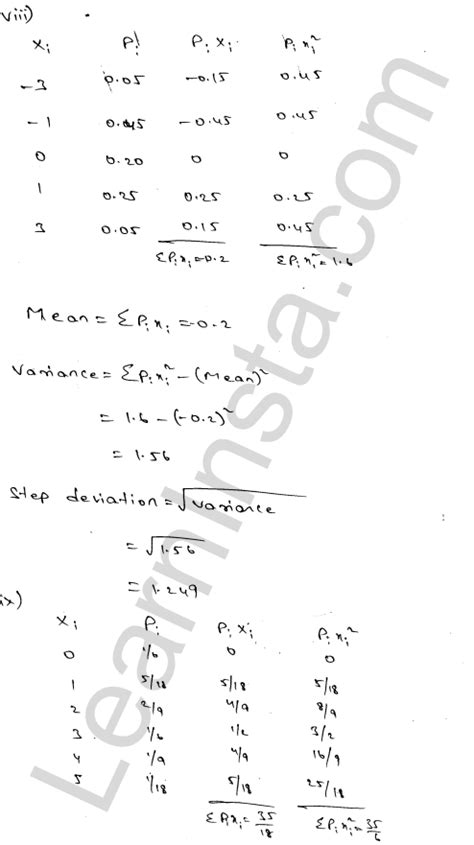 viii)
xᵢ Pᵢ Pᵢ xᵢ Pᵢ xᵢ²
-3 0.05 -0.15 0.45
-1 0.45 -0.45 0.45
0 0.20 0 0
1 0.25 0.25 0.25
3 0.05 0.15 0.45
ΣPᵢxᵢ=-0.2 ΣPᵢxᵢ²=1.6
Mean = ΣPᵢxᵢ = -0.2
Variance = ΣPᵢxᵢ² - (Mean)²
= 1.6 - (-0.2)²
= 1.56
Step deviation = √variance
= √1.56
= 1.249
ix)
xᵢ Pᵢ Pᵢ xᵢ Pᵢ xᵢ²
0 1/6 0 0
1 5/18 5/18 5/18
2 2/9 4/9 8/9
3 1/6 1/2 3/2
4 1/9 4/9 16/9
5 1/18 5/18 25/18
ΣPᵢxᵢ = 35/18 ΣPᵢxᵢ² = 35/6
LearnInsta.com